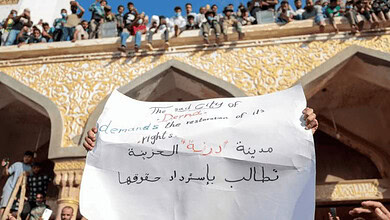 The sad City of
Derna
demands the restoration of it's
rights.
مدينة "درنة" الحزينة
تطالب بإسترداد حقوقها